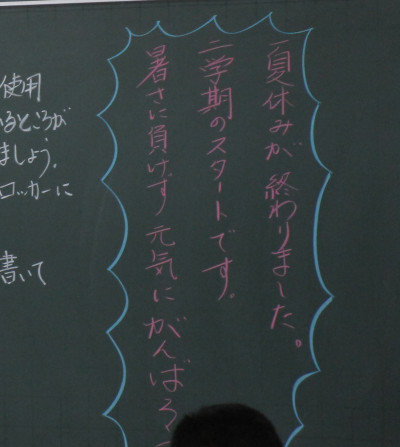 夏休みが終わりました。
二学期のスタートです。
暑さに負けず元気にがんばろう
使用
るところが
ましょう。
ロッカーに
書いて